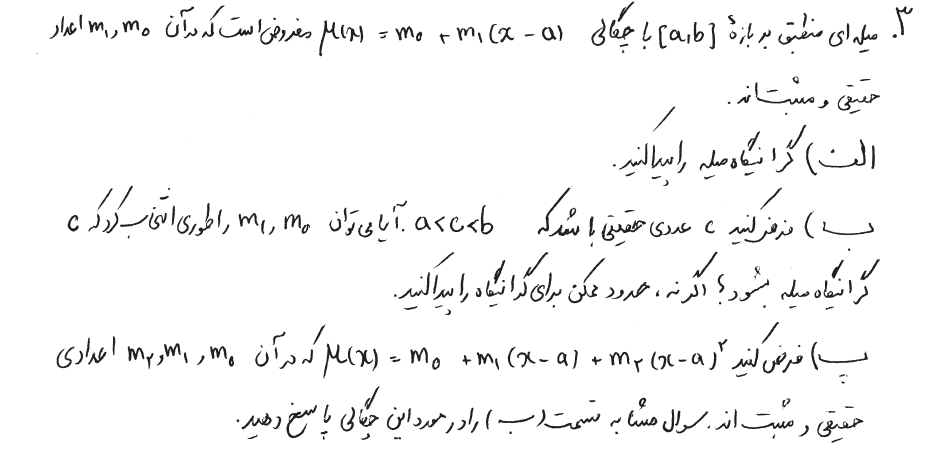 ۳. میله ای منطبق بر بازهٔ [a,b] با چگالی μ(x) = m₀ + m₁(x - a) مفروض است که در آن m₀ و m₁ اعداد
حقیقی و مثبت اند.
الف) گرانیگاه میله را پیدا کنید.
ب) فرض کنید c عددی حقیقی باشد که a<c<b. آیا می توان m₀ و m₁ را طوری انتخاب کرد که c
گرانیگاه میله بشود؟ اگر نه، حدود ممکن برای گرانیگاه را پیدا کنید.
پ) فرض کنید μ(x) = m₀ + m₁(x-a) + m₂(x-a)² که در آن m₀ و m₁ و m₂ اعدادی
حقیقی و مثبت اند. سوال مشابه قسمت (ب) را در مورد این چگالی پاسخ دهید.